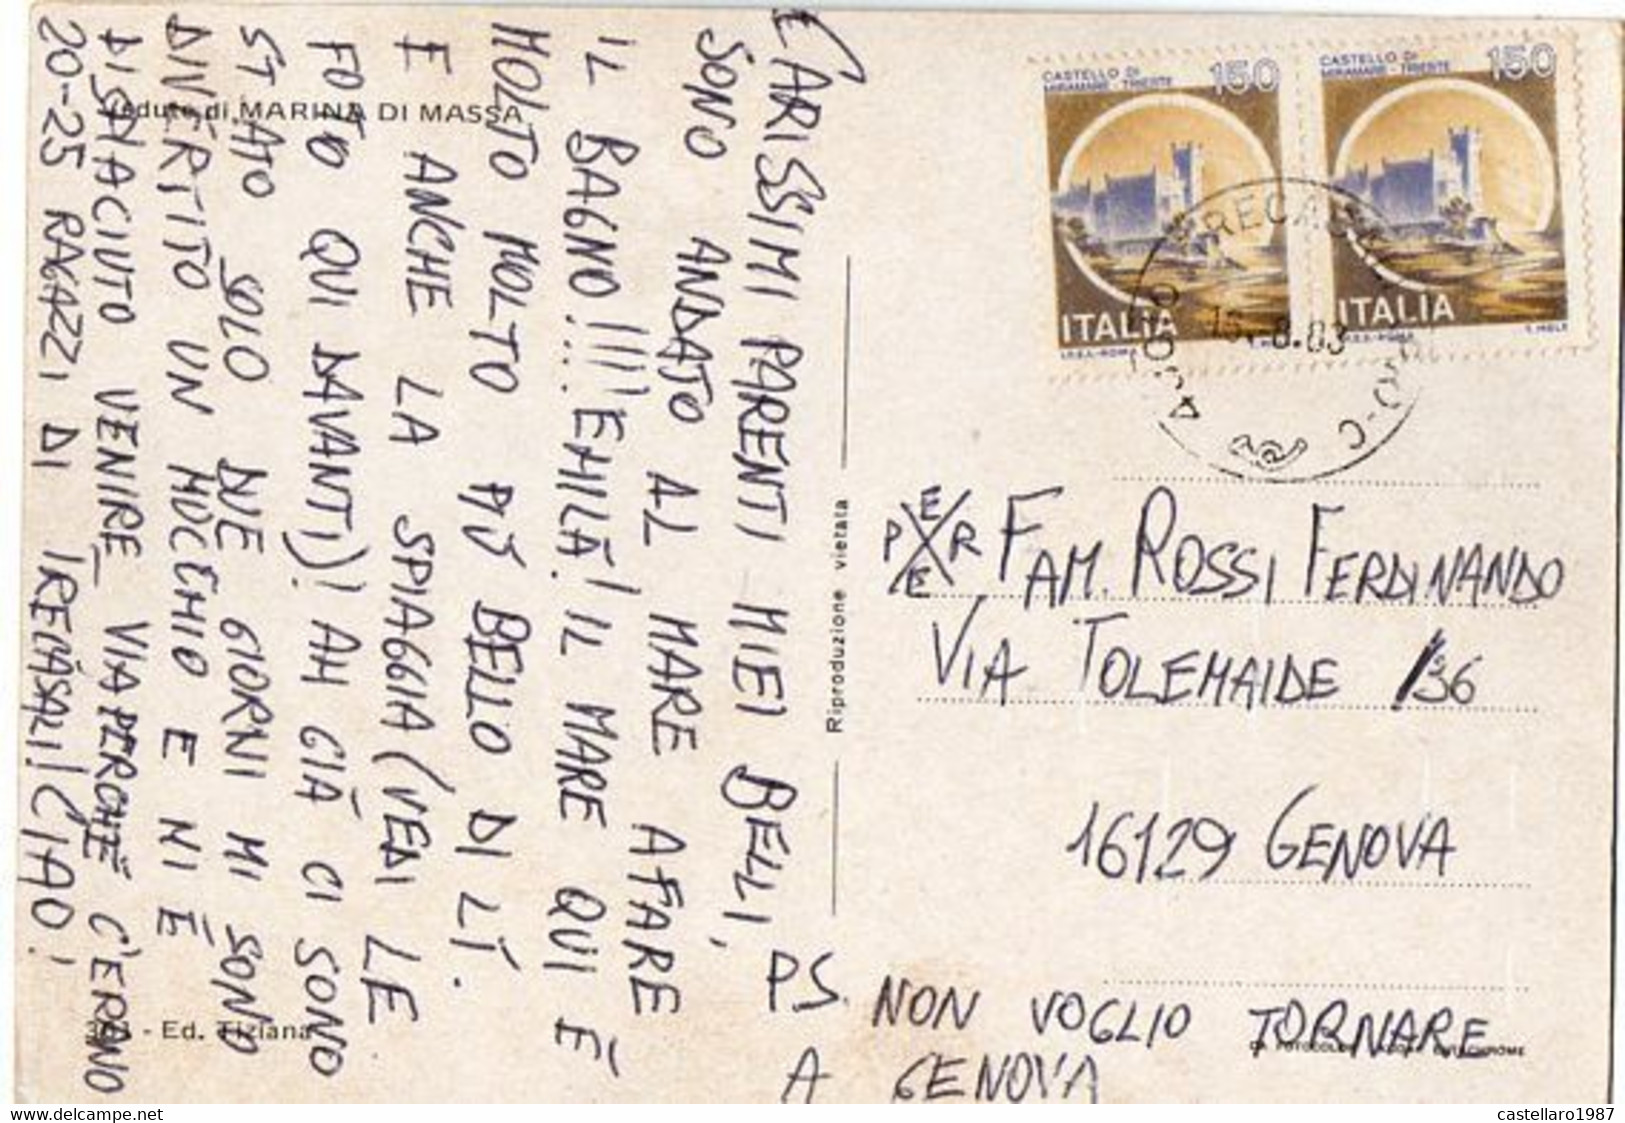 CARISSIMI PARENTI MIEI BELLI,
SONO ANDATO AL MARE A FARE
IL BAGNO!!!!... E MILÃ! IL MARE QUI È
MOLTO MOLTO MOLTO PIÙ BELLO DI LÌ.
E ANCHE LA SPIAGGIA (VEDI LE
FOTO QUI DAVANTI)! AH GIÀ CI SONO
STATO SOLO DUE GIORNI MI SONO
DIVERTITO UN MUCCHIO E MI È
DISPIACIUTO VENIRE VIA PERCHÈ C'ERANO
20-25 RAGAZZI DI IRECÁSALI! CIAO!
PS. NON VOGLIO TORNARE
A GENOVA
Vedute di MARINA DI MASSA
- Ed. Tiziana
Riproduzione vietata
CASTELLO DI
MIRAMARE - TRIESTE
150
ITALIA
I.P.S.-ROMA
CASTELLO DI
MIRAMARE - TRIESTE
150
ITALIA
I.P.S.-ROMA
8.83
PER
E E
FAM. ROSSI FERDINANDO
VIA TOLEMAIDE /36
16129 GENOVA
castellaro1987